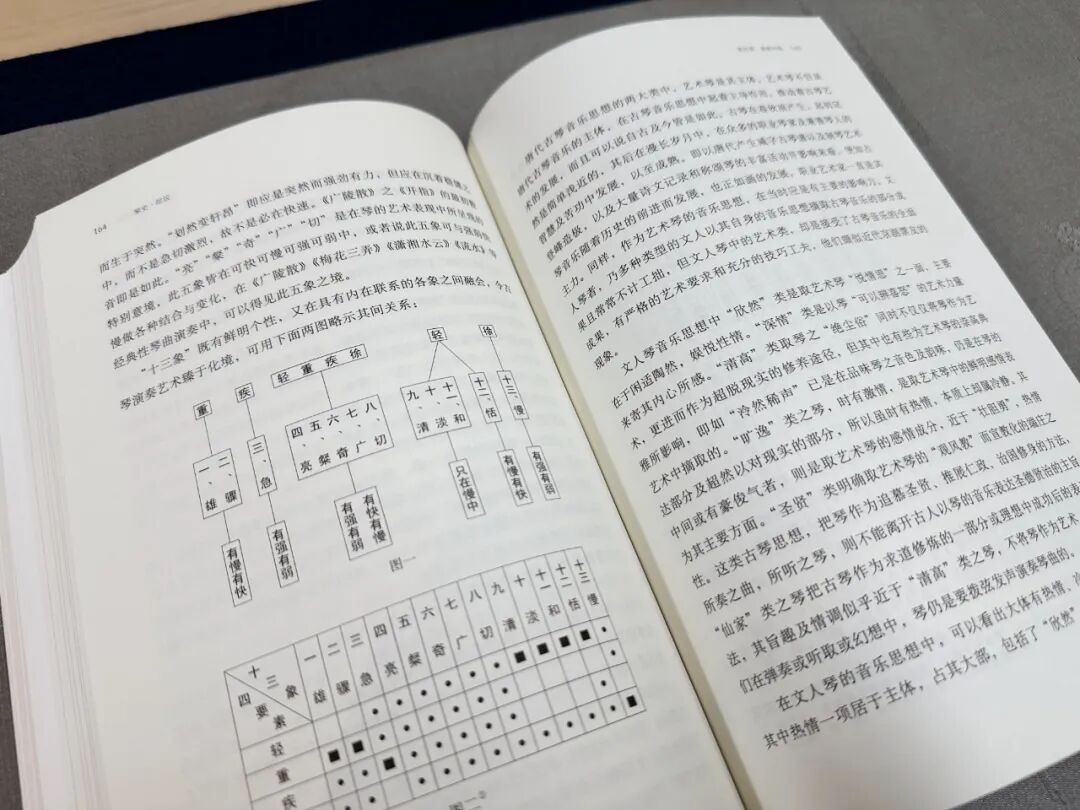 194
琴史·唐琴
而生于突然。“划然变轩昂”即应是突然而强劲有力，但应在沉着稳健之
中，而不是急切激烈，故不是必在快速。《广陵散》之《开指》的强劲断
音即是如此。“亮”“粲”“奇”“广”“切”是在琴的艺术表现中所显现的
特别意境，此五象皆在可快可慢可强可弱中，或者说此五象可与强弱快
慢做各种结合与变化，在《广陵散》《梅花三弄》《潇湘水云》《流水》等
经典性琴曲演奏中，可以得见此五象之境。
“十三象”既有鲜明个性，又在具有内在联系的各象之间融会，令古
琴演奏艺术臻于化境，可用下面两图略示其间关系：
重
疾
轻重疾徐
轻
徐
一、雄
二、骤
三、急
四、亮
五、粲
六、奇
七、广
八、切
九、清
十、淡
十一、和
十二、恬
十三、慢
有慢有快
有强有弱
有强有弱
有快有慢
只在慢中
有慢有快
有强有弱
图一
十三象
四要素
一雄
二骤
三急
四亮
五粲
六奇
七广
八切
九清
十淡
十一和
十二恬
十三慢
轻
重
疾
图二
唐代古琴音乐思想的两大类中，艺术琴是其主体，艺术琴不但是
唐代古琴音乐的主体，在古琴音乐思想中起着主导作用，推动着古琴艺
术的发展，而且可以说自古及今皆是如此。古琴在
然是简单浅近的，其后在漫长岁月中，在众多的职业琴家及兼善琴人的
智慧及苦功中发展，以至成熟。即以唐代产生减字古琴谱以及弹琴艺术
登峰造极，以及大量诗文记录和称颂琴的丰富活动许多
琴音乐随着历史的前进而发展，也正如画的发展，职业艺术家一直是其
主力。同样，作为艺术琴的音乐思想，在当时应是有主要的影响力。文
人琴者，乃多种类型的文人以其自身的音乐思想摄取古琴音乐的部分成
果且常常不计工拙，但文人琴中的艺术类，却是接受了古琴音乐的全面
成果，有严格的艺术要求和充分的技巧工夫，他们颇似近代
现象。
文人琴音乐思想中“欣然”类是取艺术琴“悦情思”之一面，主要
在于闲适陶然，娱悦性情。“深情”类是以琴“可以辨喜怒”的艺术力量
来寄其内心所感。“清高”类取琴之“绝尘俗”同时不仅仅将琴作为艺
术，更进而作为超脱现实的修养途径，但其中也有些为艺术琴的崇高典
雅所影响，即如“泠然稀声”已是在品味琴之音色及韵味，仍是在琴的
艺术中摘取的。“旷逸”类之琴，时有激情，是取艺术琴中的鲜明感情表
达部分及超然以对现实的部分，所以虽时有热情，本质上却属冷静。其
中间或有豪俊气者，则是取艺术琴的感情成分，近于“壮胆勇”，热情
为其主要方面。“圣贤”类明确取艺术琴的“观风教”而宣教化的端庄之
性。这类古琴思想，把琴作为追慕圣贤、推展仁政、治国修身的方法，
所奏之曲，所听之琴，则不能离开古人以琴的音乐表达圣德贤治的主旨
“仙家”类之琴把古琴作为求道修炼的一部分或理想中成功后的表
法，其旨趣及情调似乎近于“清高”类之琴，不将琴作为艺术
们在弹奏或听取或幻想中，琴仍是要拨弦发声演奏琴曲的。
在文人琴的音乐思想中，可以看出大体有热情、
其中热情一项居于主体，占其大部，包括了“欣然”